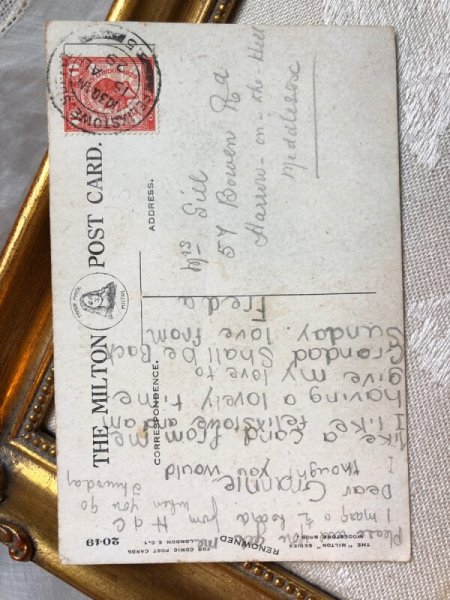 THE MILTON POST CARD.
TRADE MARK
MILTON
CORRESPONDENCE.
ADDRESS.
FELIXSTOWE
Mrs Gill
54 Bowen Rd
Harrow-on-the-Hill
Middlesex
Dear Grannie,
I thought you would
like a card from me
I like felixstowe and am
having a lovely time
Give my love to
Grandad Shall be Back
Sunday. love from
Freda
Please will you get me
from H & C
when you go
Thursday
THE "MILTON" SERIES
WOODSTONE BROS
RENOWNED
FOR COMIC POST CARDS
LONDON E.C.1
2049